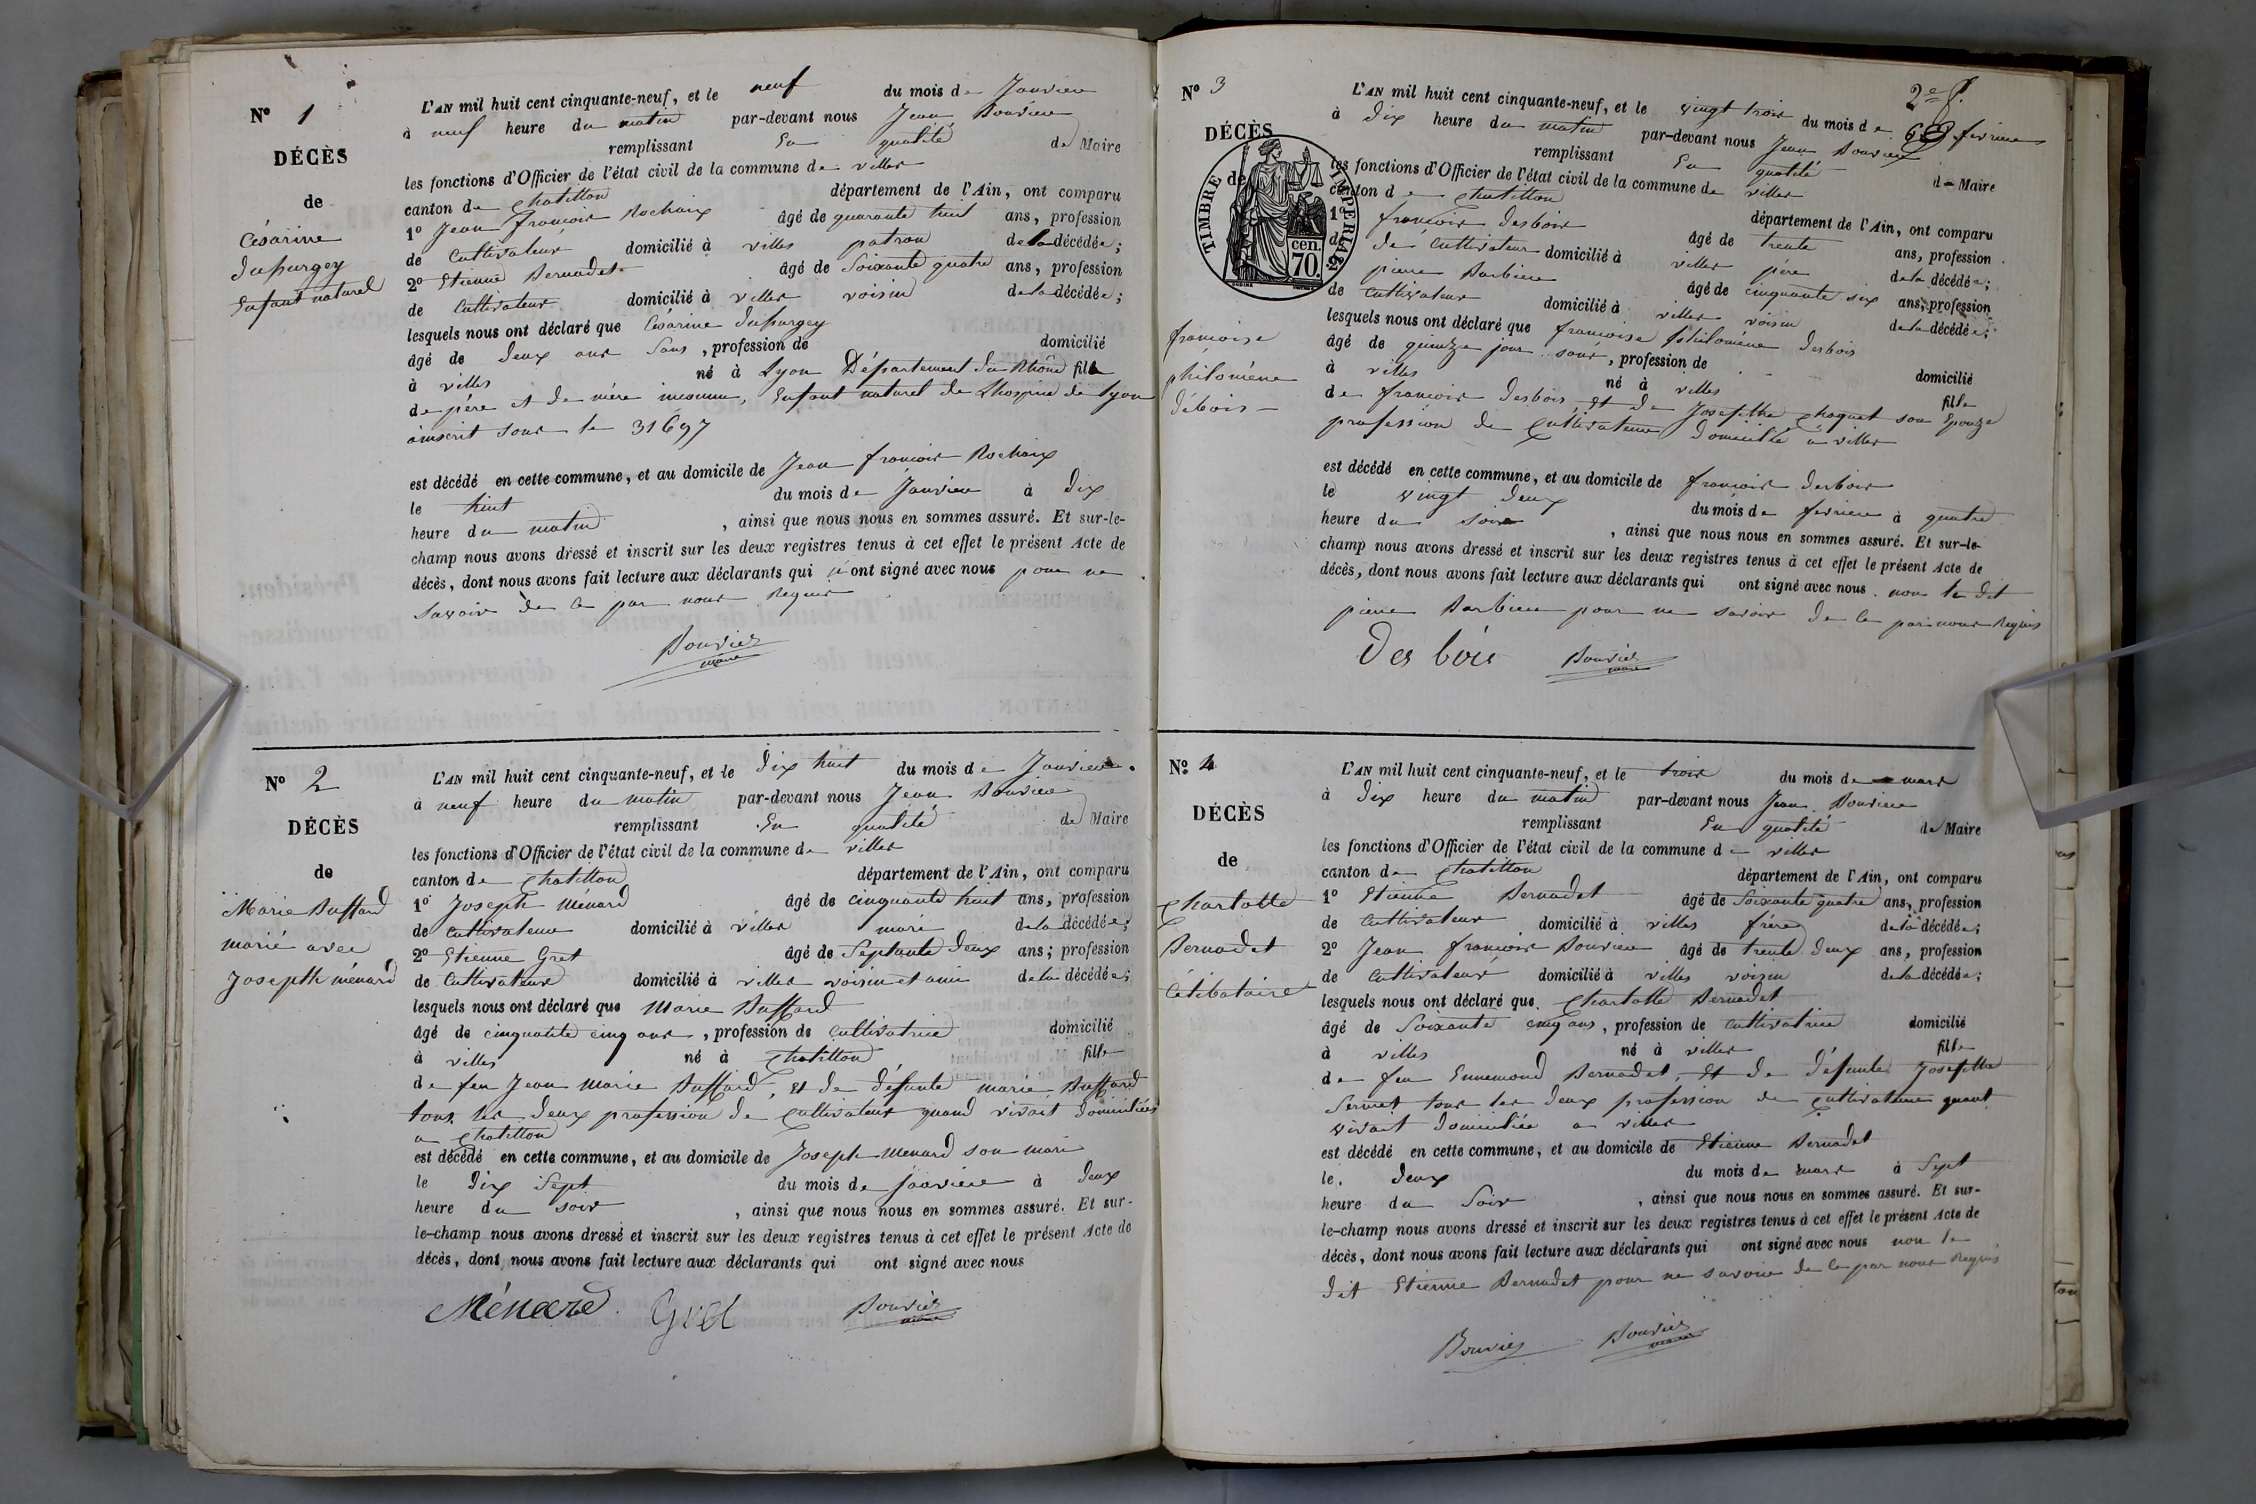 N° 1
DÉCÈS
de
Césarine
dupurgey
Enfant naturel
L'AN mil huit cent cinquante-neuf, et le neuf du mois de Janvier
à neuf heure du matin par-devant nous Jean Bouvier
remplissant En qualité de Maire
les fonctions d'Officier de l'état civil de la commune de villes
canton de Chatillon département de l'Ain, ont comparu
1° Jean françois Rochaix âgé de quarante huit ans, profession
de Cultivateur domicilié à villes patron de la décédée;
2° Etienne Bernadet âgé de Soixante quatre ans, profession
de Cultivateur domicilié à villes voisin de la décédée;
lesquels nous ont déclaré que Césarine dupurgey
âgé de deux ans Sans, profession de domicilié
à villes né à Lyon Département du Rhône fille
de père et de mère inconnu, Enfant naturel de Lhospice de lyon
inscrit sous le 31697
est décédé en cette commune, et au domicile de Jean françois Rochaix
le huit du mois de Janvier à dix
heure du matin, ainsi que nous nous en sommes assuré. Et sur-le-
champ nous avons dressé et inscrit sur les deux registres tenus à cet effet le présent Acte de
décès, dont nous avons fait lecture aux déclarants qui n'ont signé avec nous pour ne
savoir de ce par nous Requis
Bouvier
maire
N° 2
DÉCÈS
de
Marie Buffard
marié avec
Josepth ménard
L'AN mil huit cent cinquante-neuf, et le dix huit du mois de Janvier.
à neuf heure du matin par-devant nous Jean Bouvier
remplissant En qualité de Maire
les fonctions d'Officier de l'état civil de la commune de villes
canton de Chatillon département de l'Ain, ont comparu
1° Joseph Ménard âgé de cinquante huit ans, profession
de cultivateur domicilié à villes mari de la décédée;
2° Etienne Gret âgé de Septante deux ans; profession
de Cultivateur domicilié à villes voisin et ami de la décédée;
lesquels nous ont déclaré que Marie Buffard
âgé de cinquante cinq ans, profession de cultivatrice domicilié
à villes né à Chatillon fille
de feu Jean Marie Buffard, et de défunte marie Buffard
tous les deux profession de cultivateur quand vivait domiciliées
a Chatillon
est décédé en cette commune, et au domicile de Joseph Menard son mari
le dix Sept du mois de janvier à deux
heure du soir, ainsi que nous nous en sommes assuré. Et sur-
le-champ nous avons dressé et inscrit sur les deux registres tenus à cet effet le présent Acte de
décès, dont nous avons fait lecture aux déclarants qui ont signé avec nous
Ménard Gret Bouvier
maire
2e f.
N° 3
DÉCÈS
de
TIMBRE IMPERIAL
cen.
70.
françoise
philomène
débois
L'AN mil huit cent cinquante-neuf, et le vingt trois du mois de février
à dix heure du matin par-devant nous Jean Bouvier
remplissant En qualité de Maire
les fonctions d'Officier de l'état civil de la commune de villes
canton de Chatillon département de l'Ain, ont comparu
1° françois desbois âgé de trente ans, profession
de cultivateur domicilié à villes père de la décédée;
2° pierre Barbier âgé de cinquante six ans, profession
de cultivateur domicilié à villes voisin de la décédée;
lesquels nous ont déclaré que françoise philomène desbois
âgé de quinze jour sans, profession de domicilié
à villes né à villes fille
de françois desbois et de Josepthe Choquet son Epouze
profession de Cultivateur domicilié a villes
est décédé en cette commune, et au domicile de françois desbois
le vingt deux du mois de fevrier à quatre
heure du soir, ainsi que nous nous en sommes assuré. Et sur-le-
champ nous avons dressé et inscrit sur les deux registres tenus à cet effet le présent Acte de
décès, dont nous avons fait lecture aux déclarants qui ont signé avec nous non le dit
pierre Barbier pour ne savoir de ce par nous Requis
Des bois Bouvier
maire
N° 4
DÉCÈS
de
Charlotte
Bernadet
Célibataire
L'AN mil huit cent cinquante-neuf, et le trois du mois de mars
à dix heure du matin par-devant nous Jean Bouvier
remplissant En qualité de Maire
les fonctions d'Officier de l'état civil de la commune de villes
canton de Chatillon département de l'Ain, ont comparu
1° Etienne Bernadet âgé de Soixante quatre ans, profession
de Cultivateur domicilié à villes frère de la décédée;
2° Jean françois Bouvier âgé de trente deux ans, profession
de Cultivateur domicilié à villes voisin de la décédée;
lesquels nous ont déclaré que Charlotte Bernadet
âgé de Soixante cinq ans, profession de cultivatrice domicilié
à villes né à villes fille
de feu Ennemond Bernadet, Et de défunte Josepthe
Sermet tous les deux profession de cultivateur quant
vivait domiciliée a villes
est décédé en cette commune, et au domicile de Etienne Bernadet
le deux du mois de mars à Sept
heure du Soir, ainsi que nous nous en sommes assuré. Et sur-
le-champ nous avons dressé et inscrit sur les deux registres tenus à cet effet le présent Acte de
décès, dont nous avons fait lecture aux déclarants qui ont signé avec nous non le
dit Etienne Bernadet pour ne savoir de ce par nous Requis
Bouvier Bouvier
maire